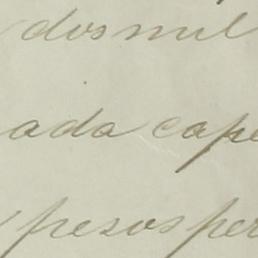 dos mil
ada cape
pesos per